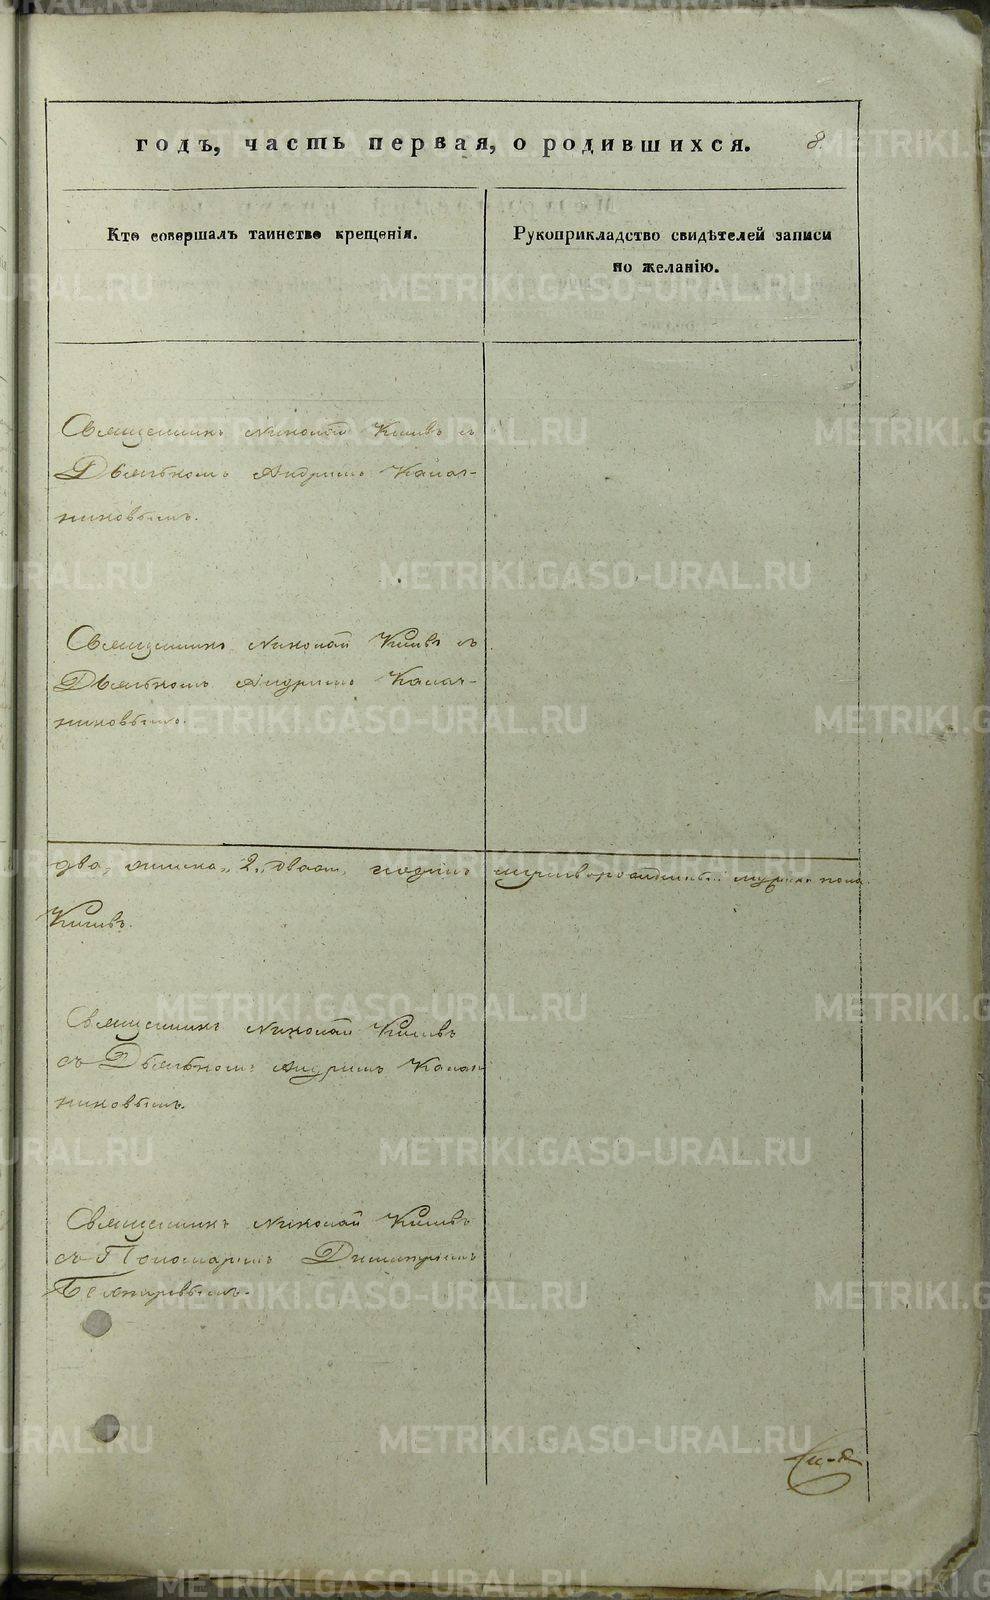 годъ, часть первая, о родившихся. 8.
Кто совершалъ таинство крещенія.
Рукоприкладство свидѣтелей записи
по желанію.
Священникъ Николай съ
Дьячкомъ Андреемъ Калач-
никовымъ.
Священникъ Николай съ
Дьячкомъ Андреемъ Калач-
никовымъ.
два, 2, мертворожденный мужска пола.
Священникъ Николай
съ Дьячкомъ Андреемъ Калач-
никовымъ.
Священникъ Николай
съ Пономаремъ Димитріемъ
METRIKI.GASO-URAL.RU